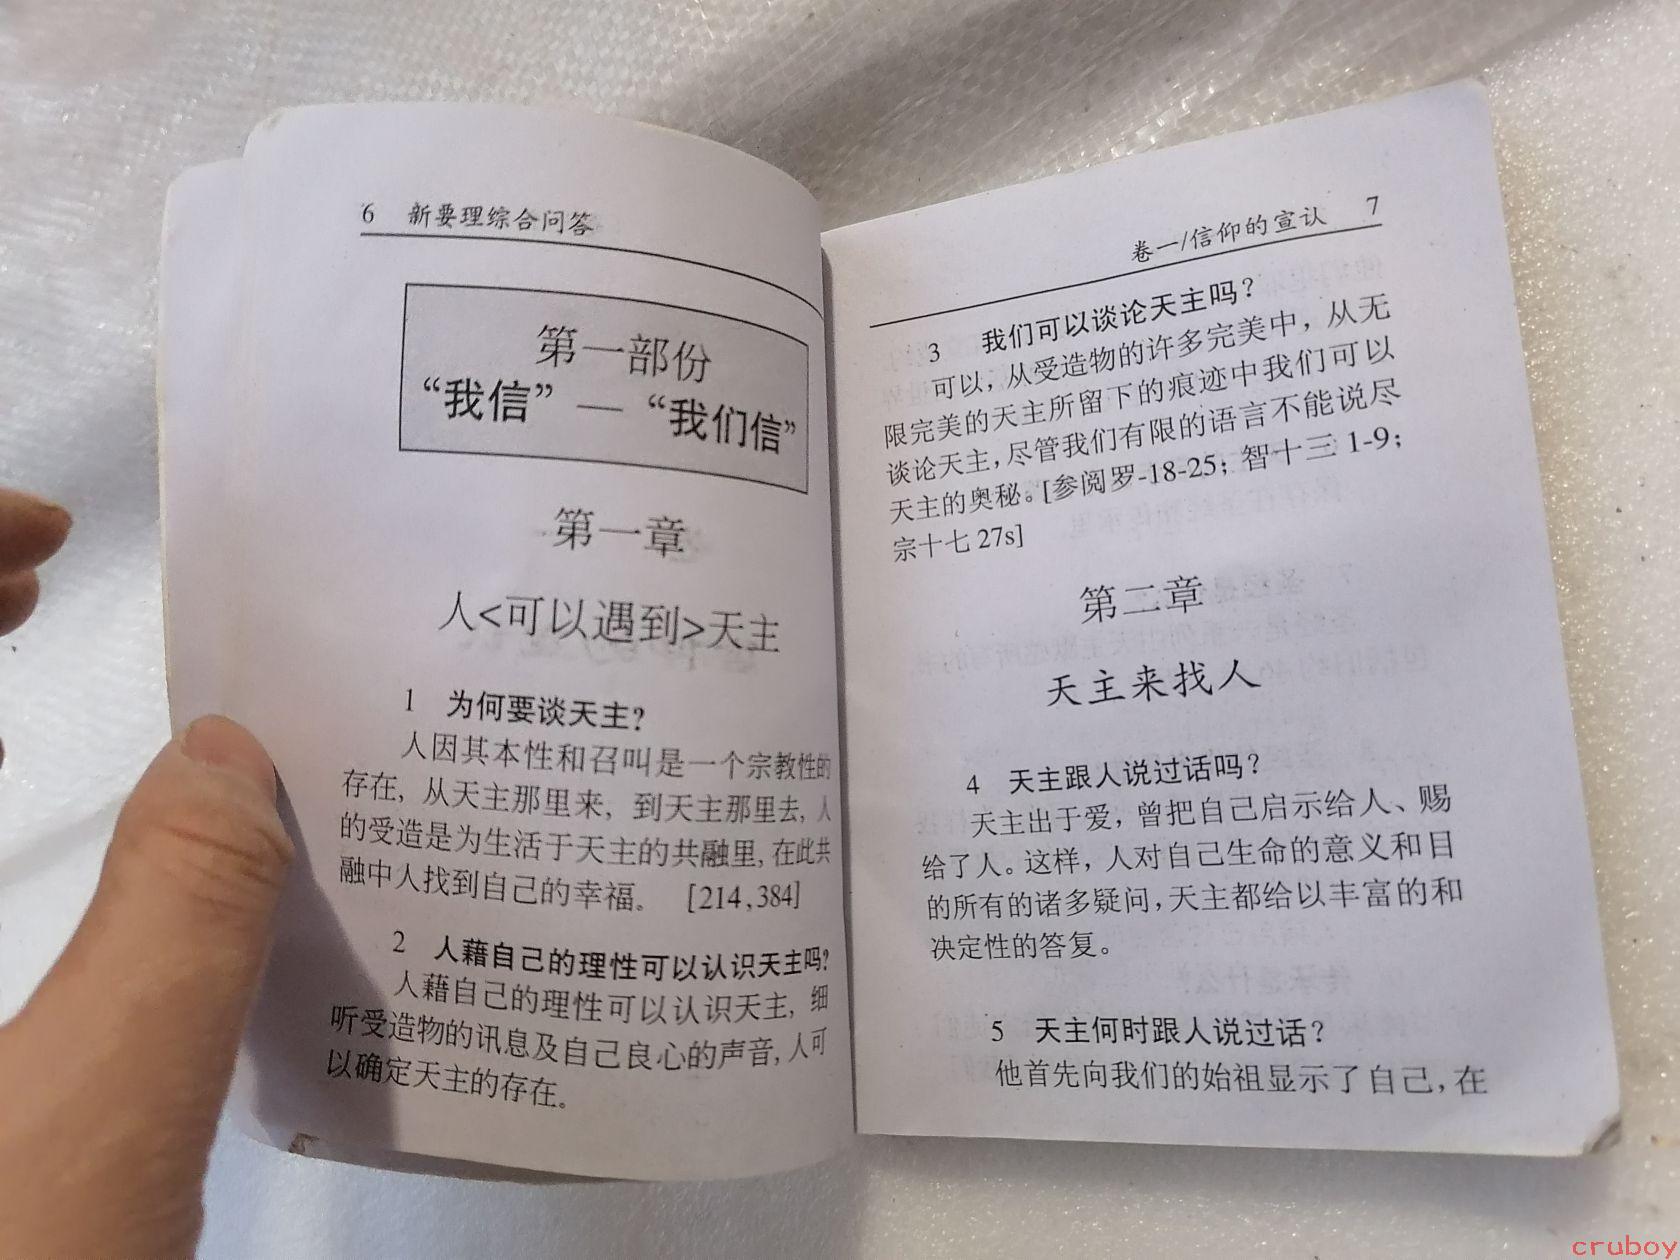 6 新要理综合问答
第一部份
“我信” — “我们信”
第一章
人<可以遇到>天主
1 为何要谈天主?
人因其本性和召叫是一个宗教性的
存在, 从天主那里来, 到天主那里去, 人
的受造是为生活于天主的共融里, 在此共
融中人找到自己的幸福。 [214,384]
2 人藉自己的理性可以认识天主吗?
人藉自己的理性可以认识天主, 细
听受造物的讯息及自己良心的声音, 人可
以确定天主的存在。
卷一/信仰的宣认 7
3 我们可以谈论天主吗?
可以, 从受造物的许多完美中, 从无
限完美的天主所留下的痕迹中我们可以
谈论天主, 尽管我们有限的语言不能说尽
天主的奥秘。[参阅罗-18-25; 智十三 1-9;
宗十七 27s]
第二章
天主来找人
4 天主跟人说过话吗?
天主出于爱, 曾把自己启示给人、赐
给了人。这样, 人对自己生命的意义和目
的所有的诸多疑问, 天主都给以丰富的和
决定性的答复。
5 天主何时跟人说过话?
他首先向我们的始祖显示了自己, 在
cruboy